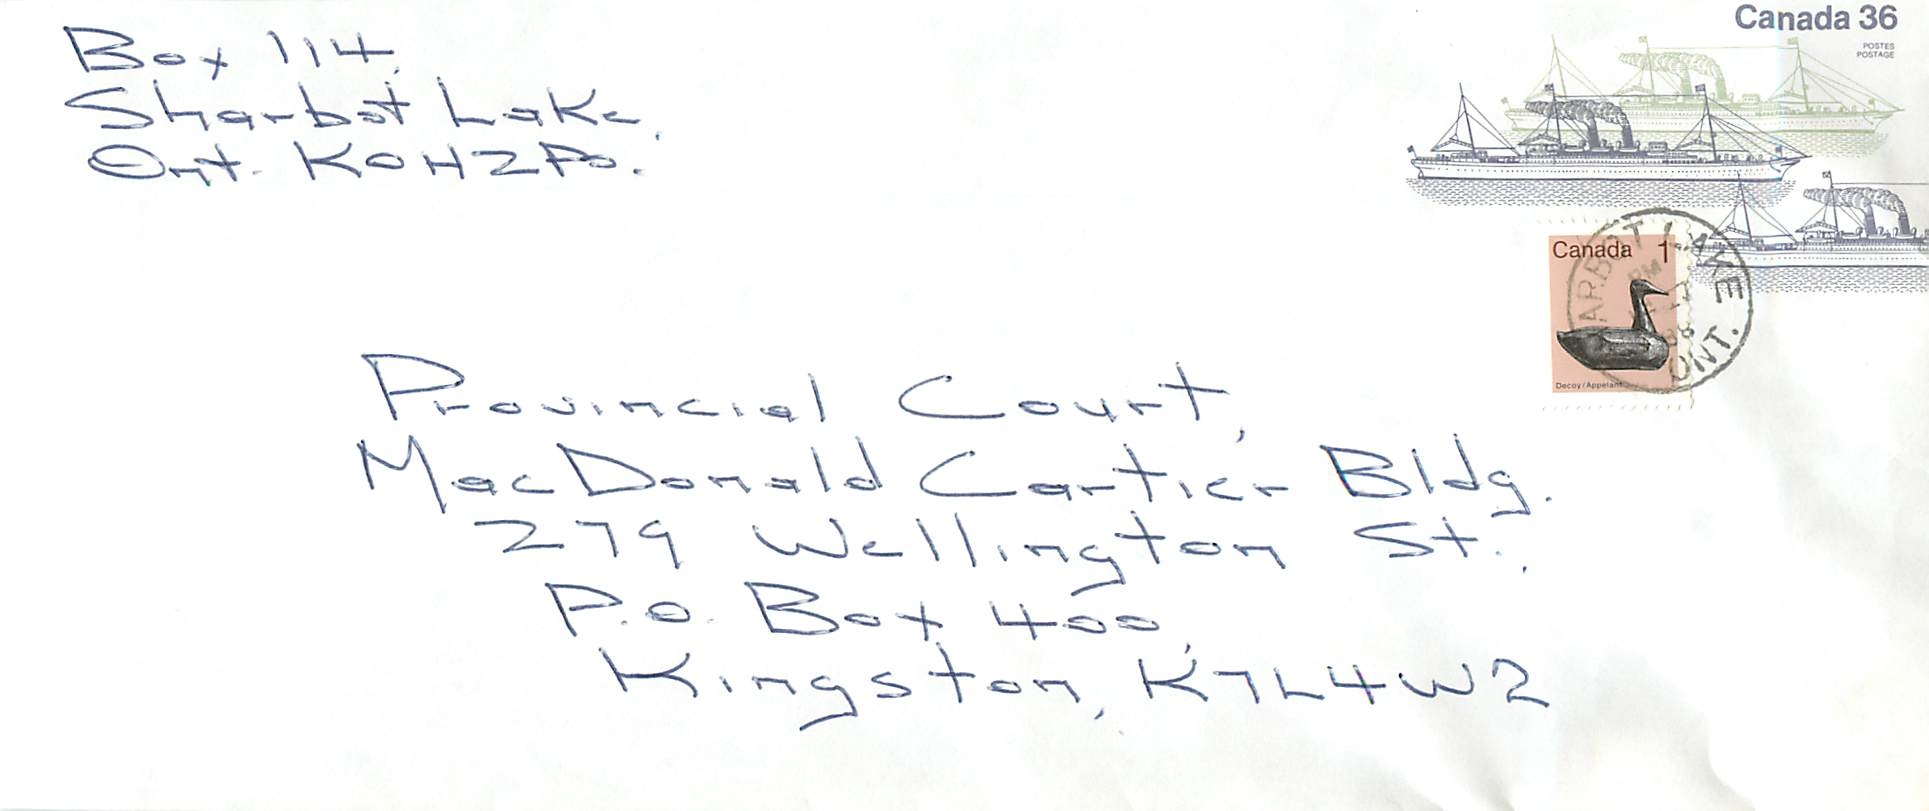 Box 114,
Sharbot Lake,
Ont. K0H2P0.
Canada 36
POSTES
POSTAGE
Canada 1
Decoy/Appelant
ARBOT LAKE
PM
88
ONT.
Provincial Court,
MacDonald Cartier Bldg.
279 Wellington St.,
P.O. Box 400,
Kingston, K7L4W2